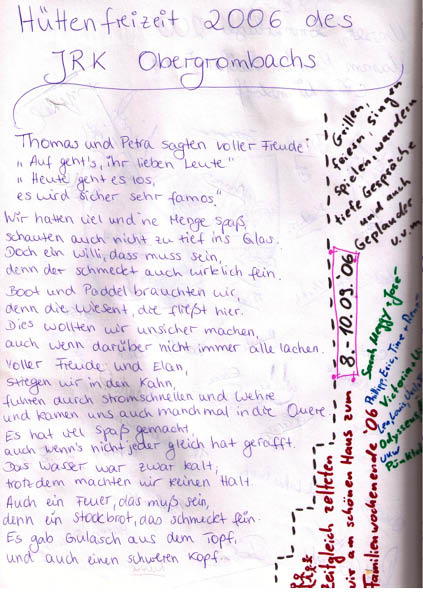 Hüttenfreizeit 2006 des
JRK Obergrombachs
Thomas und Petra sagten voller Freude:
"Auf geht's, ihr lieben Leute"
"Heute geht es los,
es wird sicher sehr famos."
Wir hatten viel und 'ne Menge Spaß,
schauten auch nicht zu tief in's Glas.
Doch ein Willi, dass muss sein,
denn der schmeckt auch wirklich fein.
Boot und Paddel brauchten wir,
denn die Wiesent, die fließt hier.
Dies wollten wir unsicher machen,
auch wenn darüber nicht immer alle lachen.
Voller Freude und Elan,
stiegen wir in den Kahn,
fuhren durch Stromschnellen und Wehre
und kamen uns auch manchmal in die Quere.
Es hat viel Spaß gemacht,
auch wenn's nicht jeder gleich hat gerafft.
Das Wasser war zwar kalt,
trotzdem machten wir keinen Halt.
Auch ein Feuer, das muß sein,
denn ein Stockbrot, das schmeckt fein.
Es gab Gulasch aus dem Topf,
und auch einen schweren Kopf.
Zeitgleich zelteten
wir am schönen Haus zum
Familienwochenende '06
8.-10.09.06
Grillen,
Feiern, Singen
Spielen, wandern
tiefe Gespräche
und auch
Geplauder
u.v.m.
Sarah, Meggy,
Philipp, Eric, Timo
Victoria